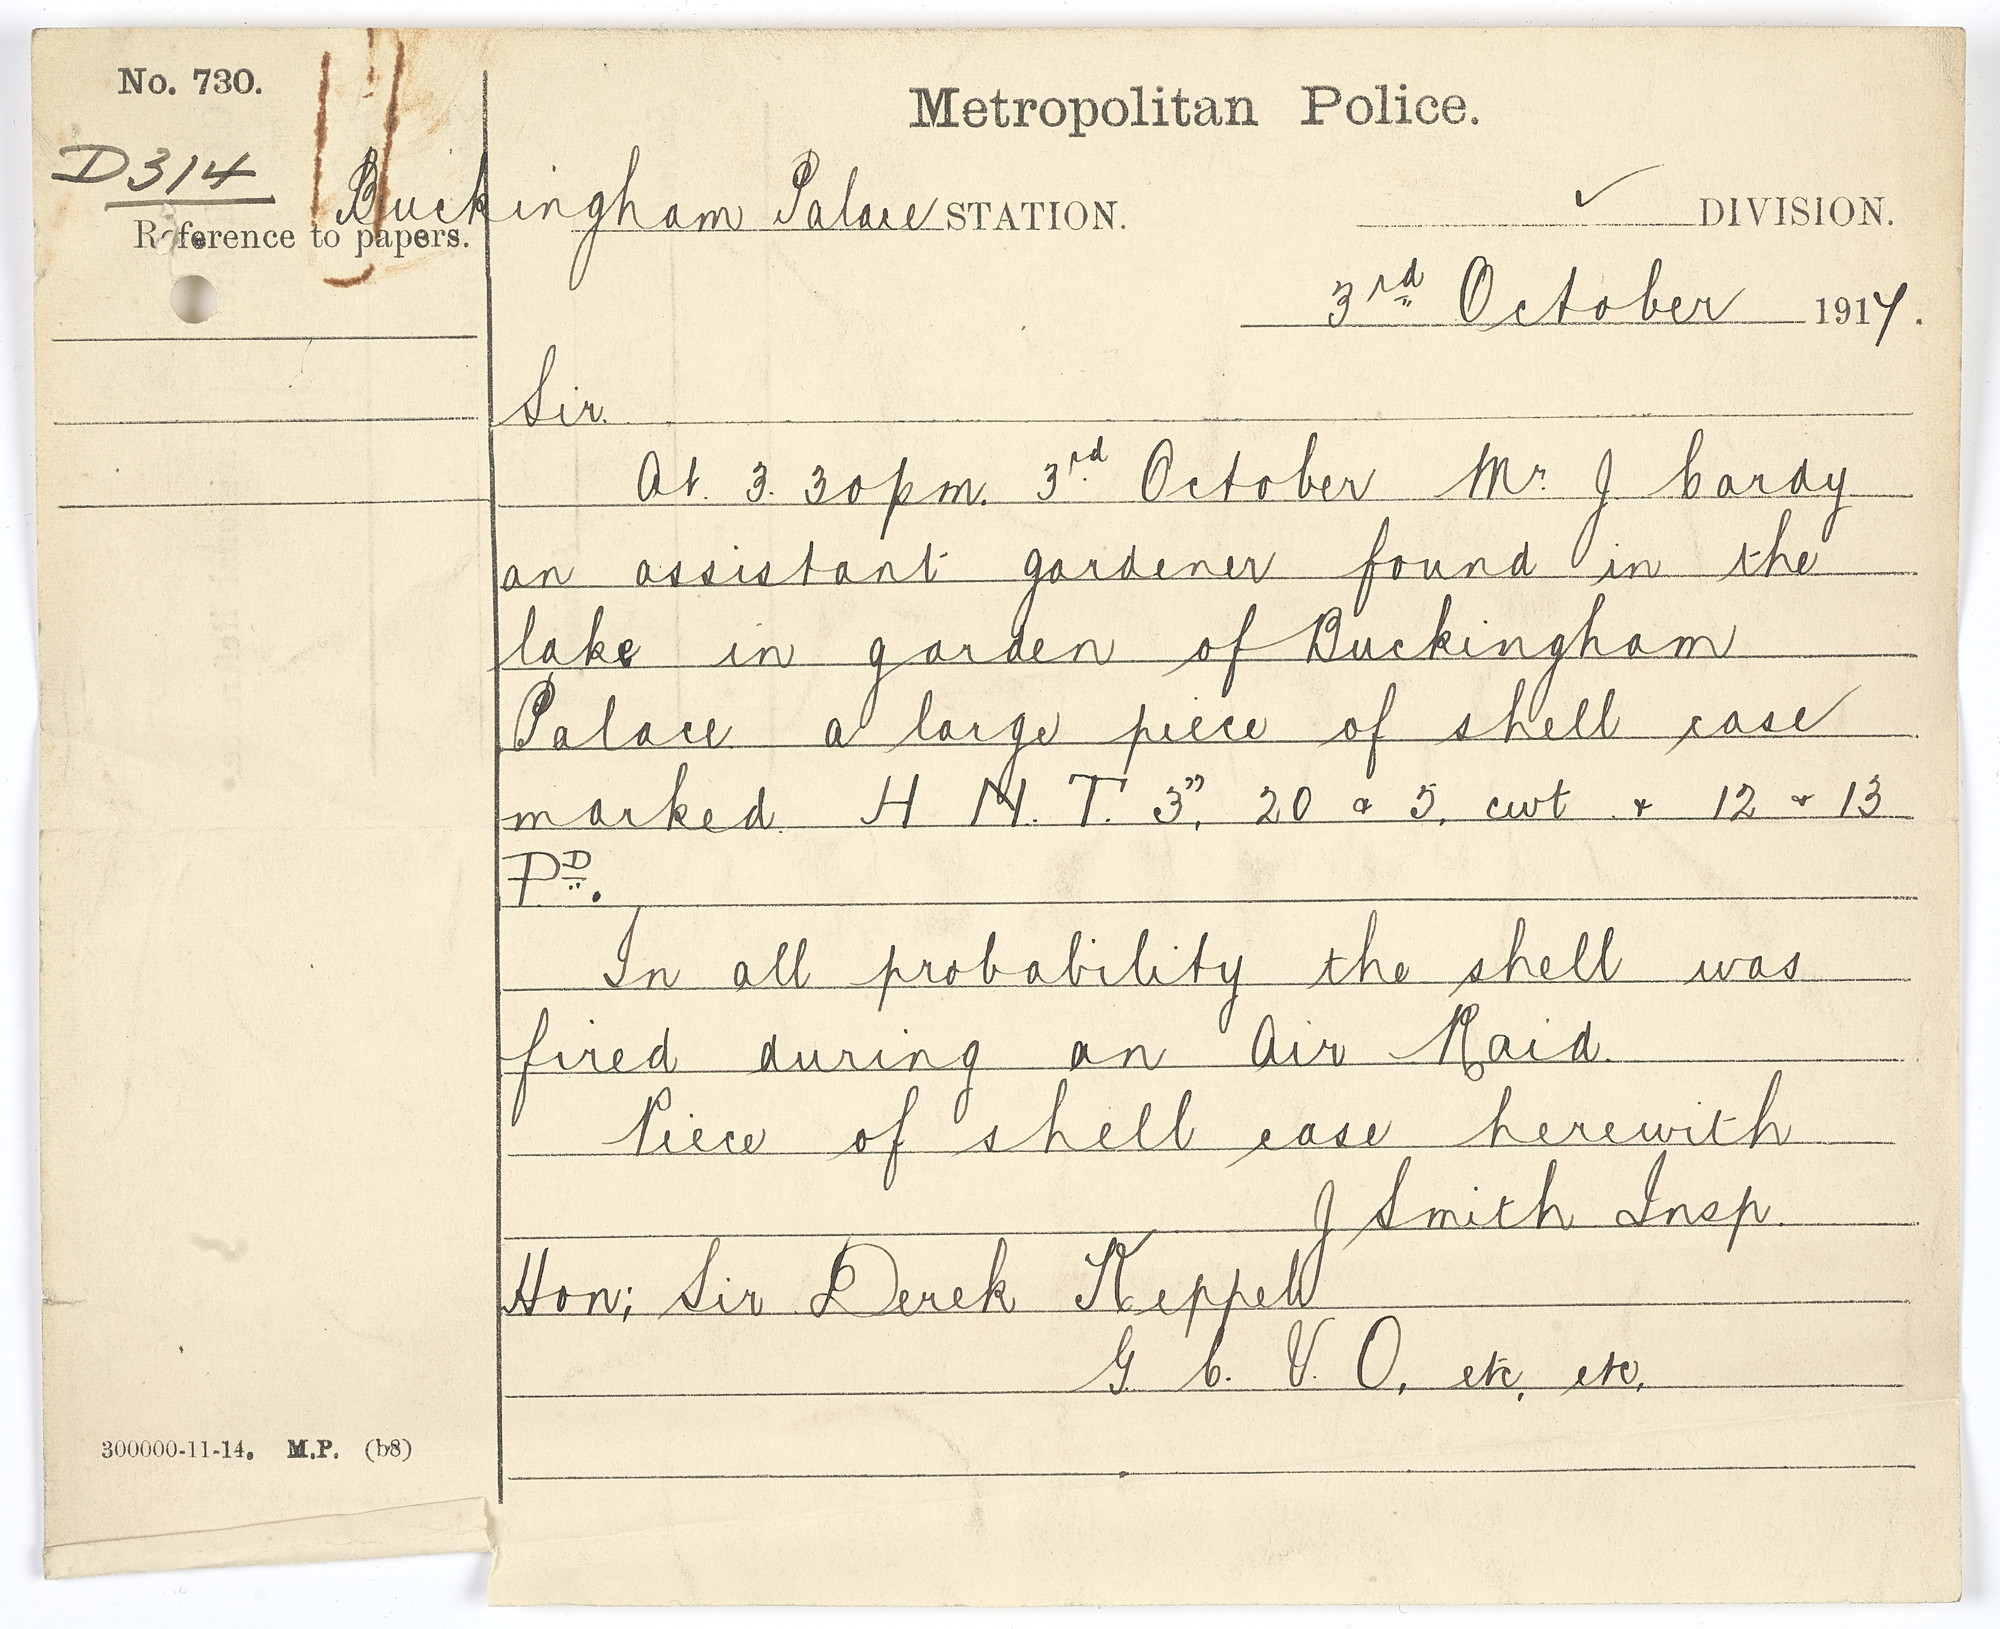 No. 730.
Metropolitan Police.
D314
Buckingham Palace STATION. DIVISION.
Reference to papers.
3rd October 1917.
Sir.
At. 3. 30pm. 3rd October Mr. J Cardy
an assistant gardener found in the
lake in garden of Buckingham
Palace a large piece of shell case
marked. H N. T. 3", 20 & 5. cwt & 12 & 13
PD.
In all probability the shell was
fired during an Air Raid.
Piece of shell case herewith
J Smith Insp.
Hon; Sir Derek Keppel
G. C. V. O. etc. etc.
300000-11-14. M.P. (b8)